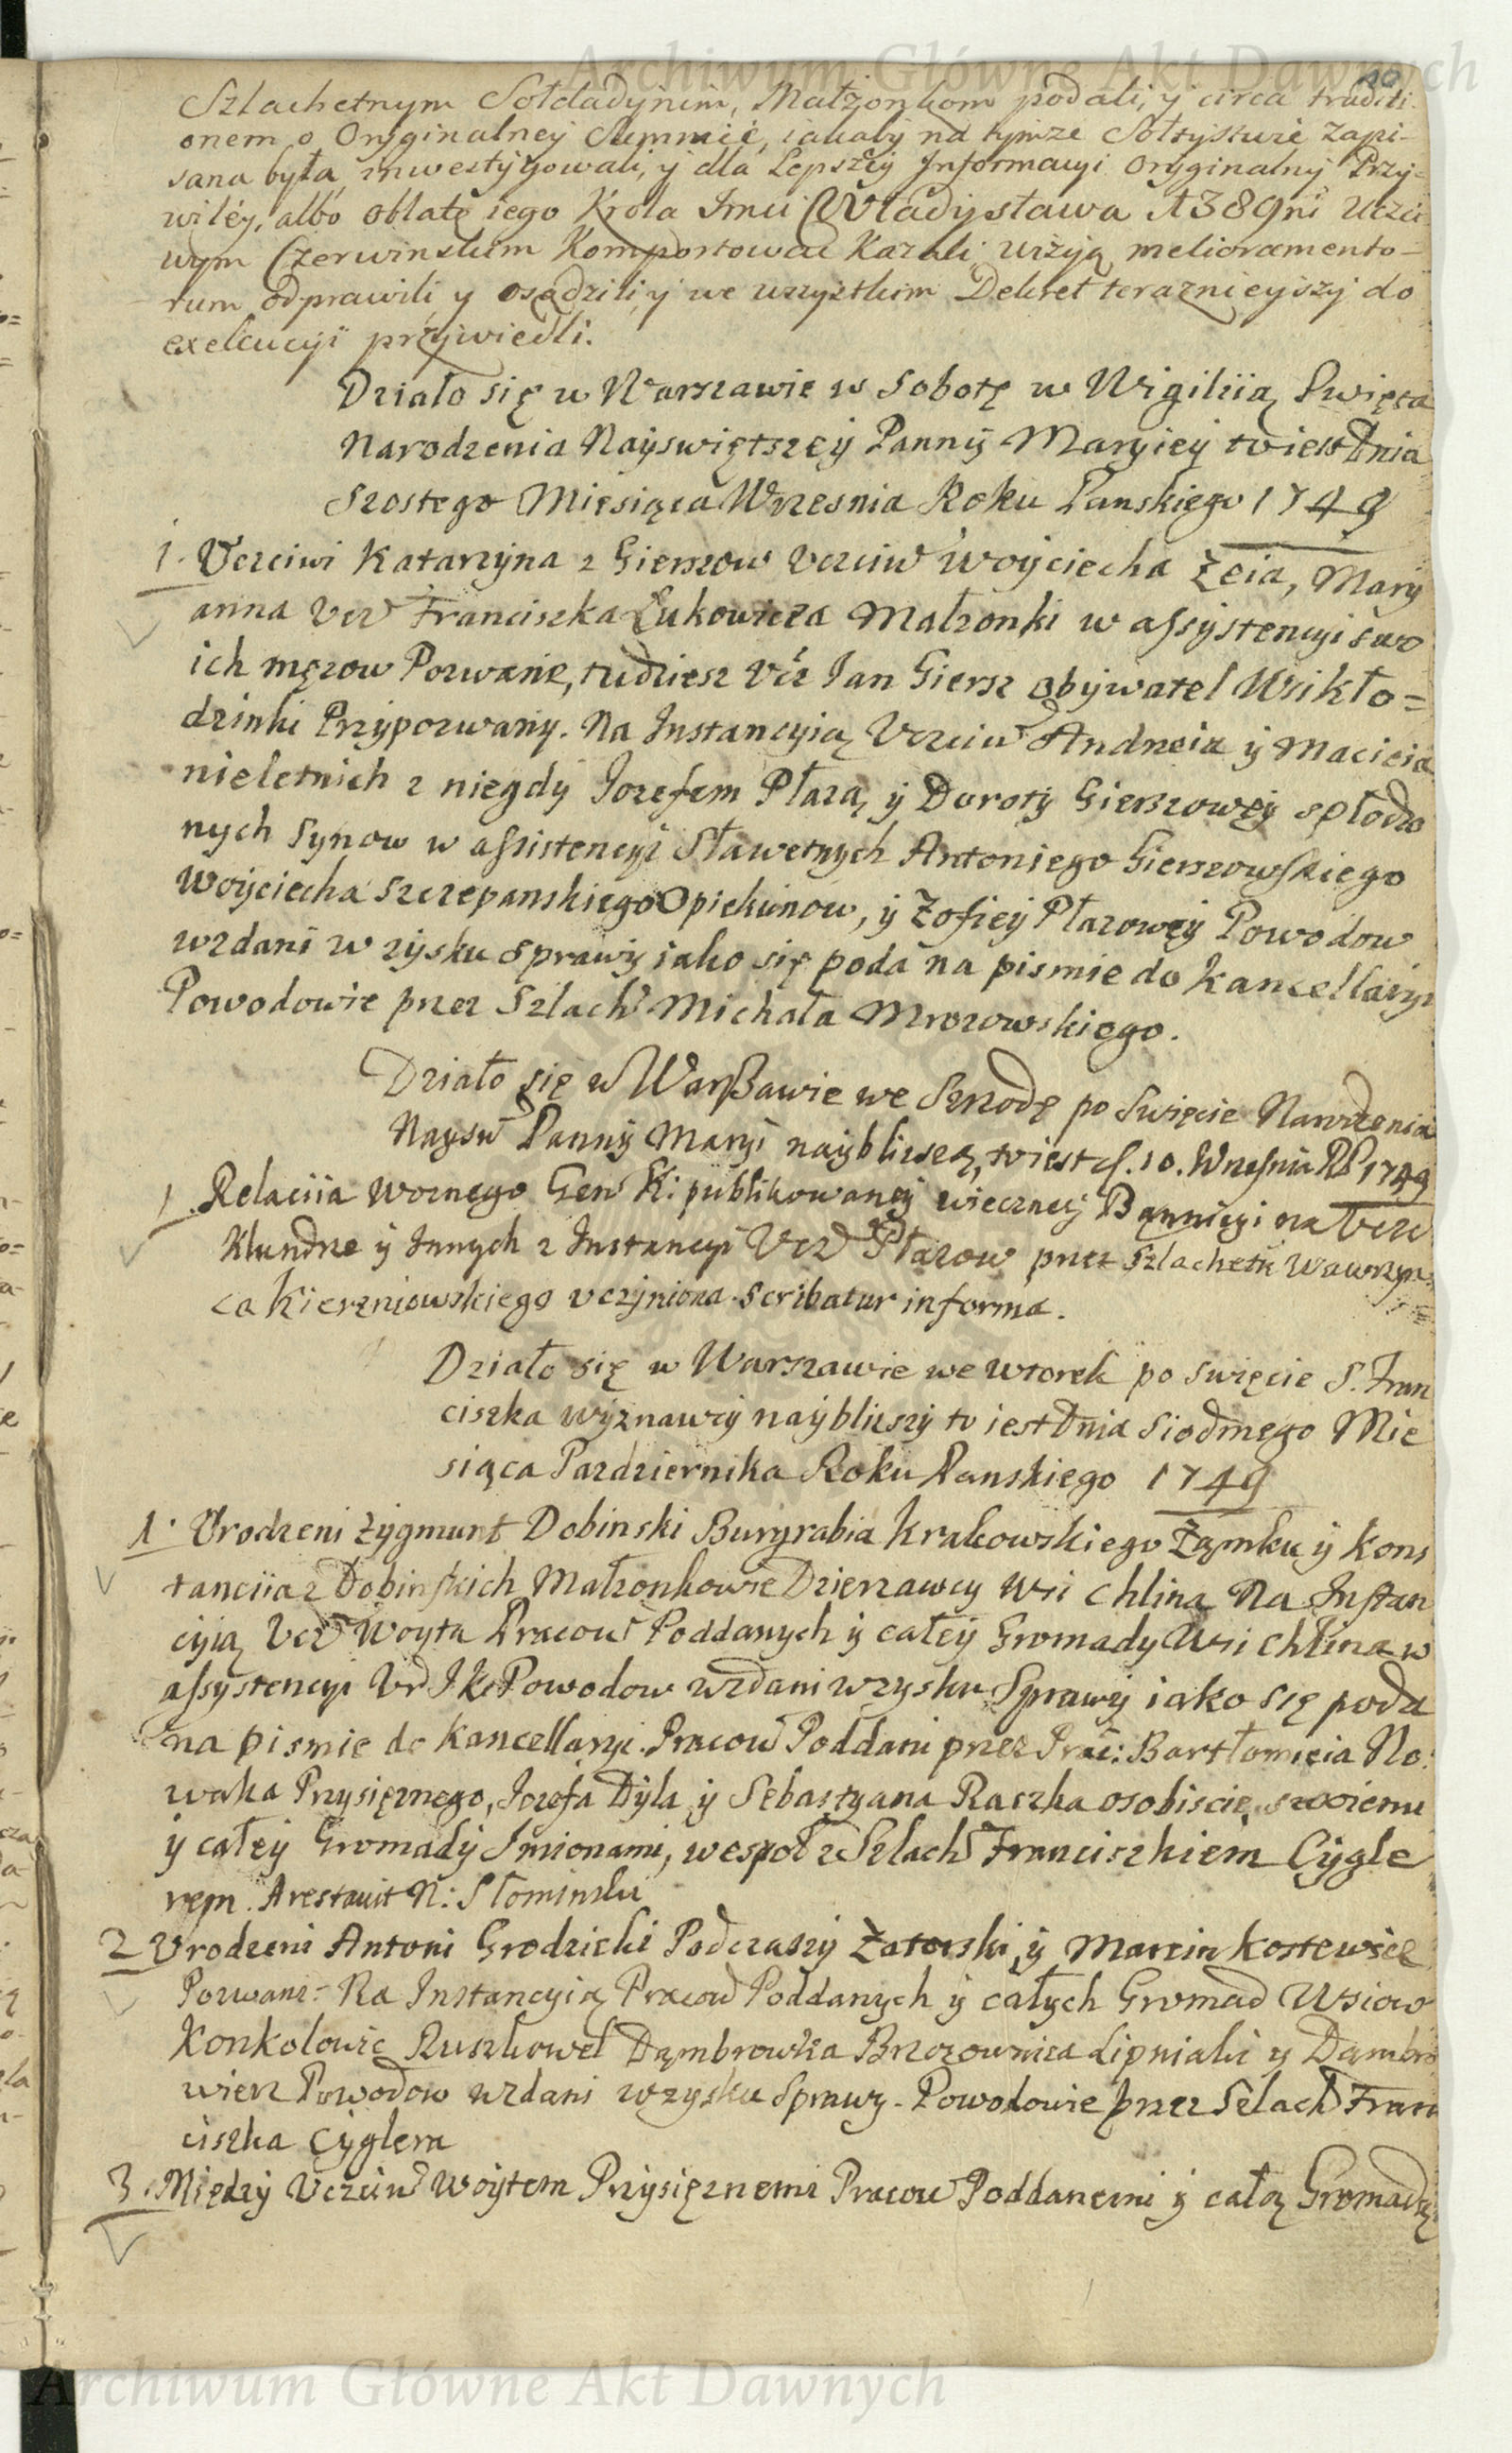 Archiwum Główne Akt Dawnych
40
Szlachetnym Sołdadynim, Małżonkom podali, y circa traditi-
onem o Oryginalney Summie, iakaby na tymze Sołtystwie zapi-
sana była, inwestygowali, y dla Lepszey Informacyi Oryginalny Przy-
wiley, albo oblatę iego Krola Imci Władysława A 389ni Uczci
wym Czerwinskim Komportować Kazali wizyą melioramento-
rum odprawili, y osądzili, y we wszystkim Dekret teraznieyszy do
exekucyi przywiedli.
Działo się w Warszawie w Sobotę w Wigiliią Swięta
Narodzenia Nayswiętszey Panny Maryiey to iest Dnia
Szostego Miesiąca Wrzesnia Roku Panskiego 1749
1. Uczciwi Katarzyna z Gierszow Uczciw Woyciecha Zeia, Mary
anna Ucz Franciszka Łukowicza Małzonki w assystencyi swo
ich męzow Pozwane, tudziesz Ucz Ian Giersz obywatel Wsi Kło=
dzinki Przypozwany. Na Instancyią Uczciw Andrzeia y Macieia
nieletnich z niegdy Iozefem Płazą, y Doroty Gierszowey spłodzo
nych Synow w assistencyi Sławetnych Antoniego Gierszowskiego
Woyciecha Szczepanskiego Opiekunow, y Zofiey Płazowey Powodow
wzdani w zysku sprawy iako się poda na pismie do Kancellaryi
Powodowie przez Szlach Michała Mrozowskiego.
Działo się w Warszawie we Srzodę po Swięcie Narodzenia
Naysw Panny Maryi nayblizszą, to iest d. 10. Wrzesnia RP 1749
1 Relaciia Woznego Gen K: publikowaney wieczney Bannicyi na Ucz
Klundze y Innych z Instancyi Ucz Płazow przez Szlachetn Wawrzyn=
ca Kierzniowskiego uczyniona. Scribatur in forma.
Działo się w Warszawie we wtorek po swięcie S. Fran
ciszka wyznawcy nayblizszy to iest Dnia Siodmego Mie
siąca Pazdziernika Roku Panskiego 1749
1. Urodzeni Zygmunt Dobinski Burgrabia Krakowskiego Ządmku y Kons
tanciia z Dobinskich Małzonkowie Dzierzawcy Wsi Chlina Na Instan
cyią Ucz Woyta Pracow Poddanych y całey Gromady Wsi Chlina w
assystencyi Ur I K Powodow wzdani w zysku Sprawy iako się poda
na pismie do Kancellaryi. Pracow Poddani przez Prac: Bartłomieia No:
waka Przysięznego, Iozefa Dyla y Sebastyana Raczka osobiscie, swoiemi
y całey Gromady Imionami, wespoł z Szlach Franciszkiem Cygle
rem. Arestavit N: Słominski
2 Urodzeni Antoni Grodzicki Podczaszy Zatorski, y Marcin Kostewicz
Pozwani: Na Instancyią Pracow Poddanych y całych Gromad Wsiow
Konkolowic Ruszkowet Dąmbrowka Brzozownica Lipniaki y Dąmbro
wiec Powodow wzdani w zysku Sprawy. Powodowie przez Szlach Fran
ciszka Cyglera
3. Między Uczciw Woytem Przysięznemi Pracow Poddanemi y całą Gromadą
Archiwum Główne Akt Dawnych